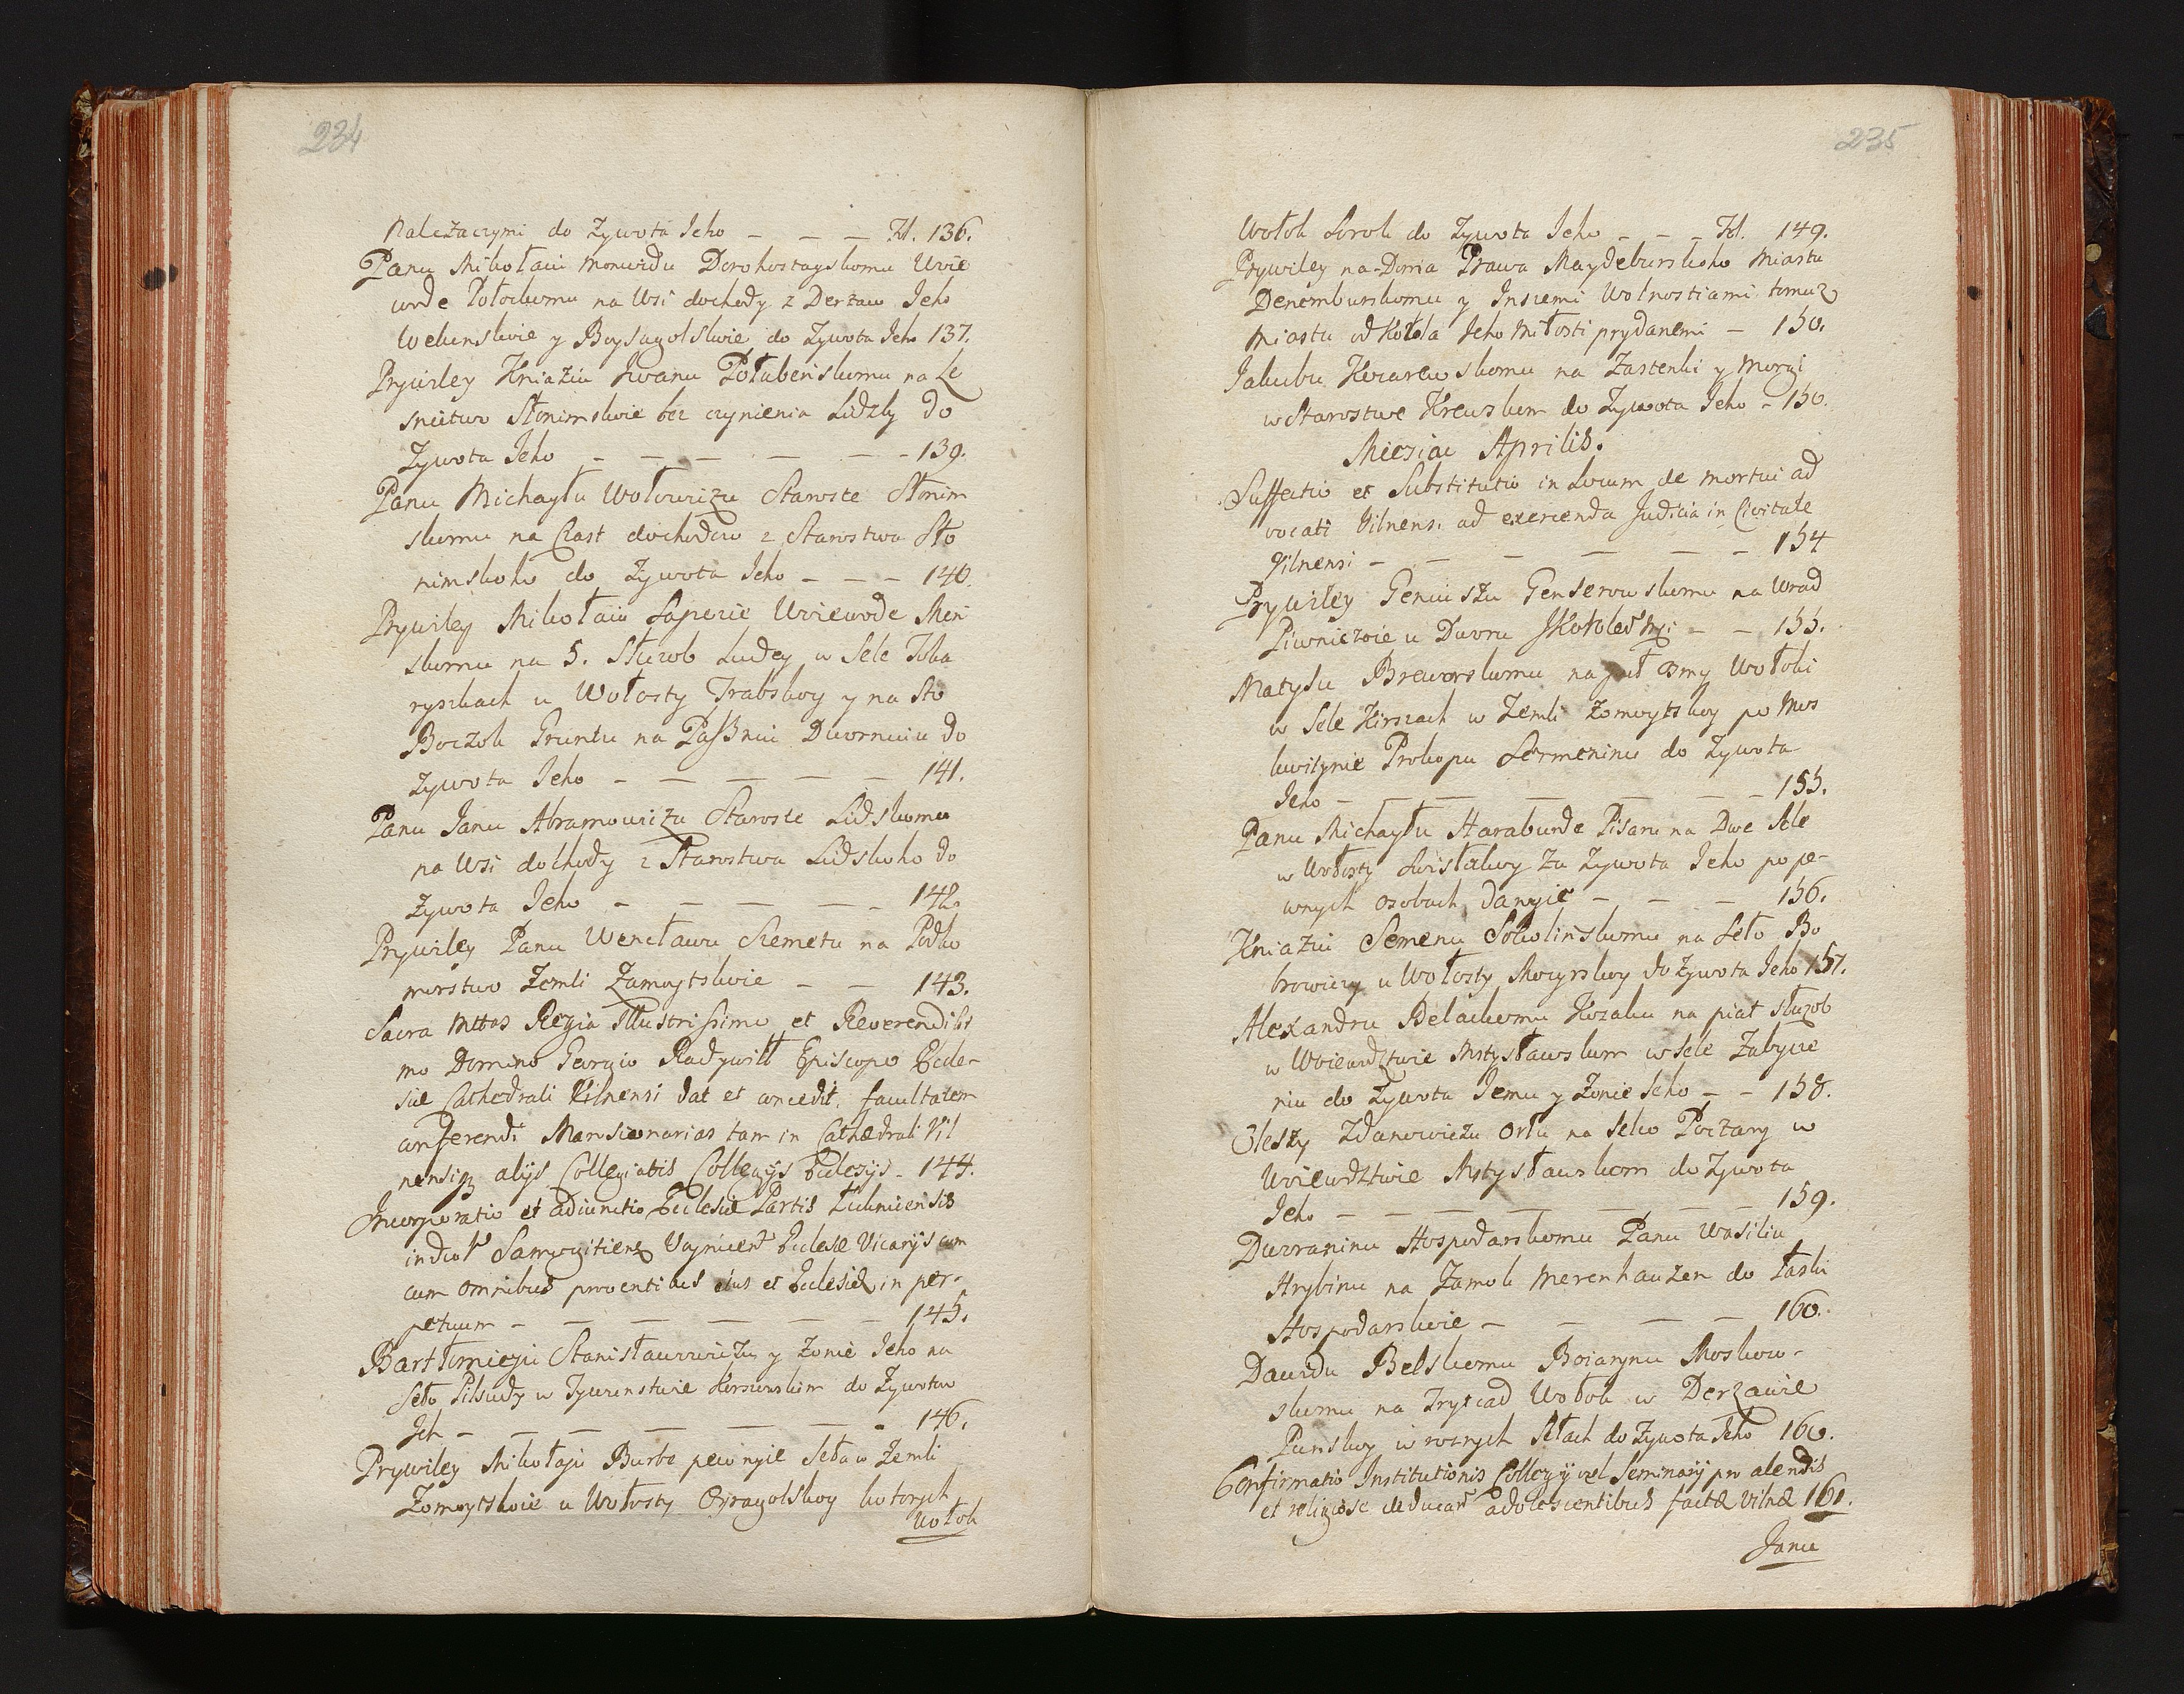 234
Należaczymi do Zywota Jeho — — — Kl. 136.
Panu Mikołaiu Monwidu Dorohostayskomu Woie
wode Połockomu na Wsi dochody z Derżaw Jeho
Welunskoie y Boysagolskoie do Zywota Jeho 137.
Prywiley Kniaziu Iwanu Połubeńskomu na Le
snictwo Słonimskoie bez czynienia Lidzby do
Zywota Jeho — — — — — 139.
Panu Michayłu Wołowiczu Staroste Słonim
skomu na Czast dochodow z Starostwa Sło
nimskoho do Zywota Jeho — — — 140.
Prywiley Mikołaiu Sapezie Woiewode Men
skomu na 5. Słuzob Ludey w Sele
ryszkach u Wołosty Trabskoy y na Sto
Boczok Gruntu na Paßniu Dwornuiu do
Zywota Jeho — — — — — 141.
Panu Janu Abramowiczu Staroste Lidskomu
na Wsi dochody z Starostwa Lidskoho do
Zywota Jeho — — — — — 142.
Prywiley Panu Wencławu Szemetu na Podko
morstwo Zemli Zamoytskoie — — 143.
Sacra Mttas Regia Illustrissimo et Reverendiss
mo Domino Georgio Radywiłł Episcopo Eccle-
siæ Cathedrali Vilnensi dat et concedit facultatem
conferendi Mansionarias tam in Cathedrali Vil
nensiq alijs Collegiatis Collegijs Eclesijs - 144.
Incorporatio et adiunctio Eclesiæ Partis
Samogitiens Eclesiæ Vicarijs cum
cum omnibus proventibus eius et Eclesiæ in per-
petuum — — — — — — 145.
Bartłomieju Stanisławowiczu y Zonie Jeho na
Seło Piłsudy w Tywunstwie Korszewskim do Zywotow
Ich — — — — — — 146.
Prywiley Mikołaju Burbe pewnyie Seła w Zemli
Zomoytskoie u Wołosty Eyragolskoy kotorych
Wołok
235
Wołok Sorok do Zywota Jeho — — — Kl. 149.
Prywiley na Dania Prawa Maydeburskoho Miastu
Denemburskomu y Inszemi Wolnostiami tomuz
Miastu od Korola Jeho Miłosti prydanemi — 150.
Jakubu na Zastenki y Morgi
w Starostwe Krewskom do Zywota Jeho - 150.
Miesiac Aprilis.
Suffectio et Substitutio in Locum de mortui ad
vocati Vilnens. ad exercenda Judicia in Civitate
Vilnensi — — — — — — 154
Prywiley Geniuszu Genserowskomu na Wrad
Piwniczoie u Dworu — — 155.
Matysu Breworskomu na puł osmy Wołoki
w Sele Kirszach w Zemli Zomoytskoy po Mos
kwitynie Prokopu Sermeninu do Zywota
Jeho — — — — — — 155.
Panu Michayłu Haraburde Pisaru na Dwe Sele
w Wołosty Swisłockoy Za Zywota Jeho po pe-
wnych osobach danyie — — — 156.
Kniaziu Semenu Sokolinskomu na Seło Bo
browiczy u Wołosty Mozyrskoy do Zywota Jeho 157.
Alexandru Belackomu Kozaku na piat słuzob
w Woiewdztwie Mstysławskom w Sele Zabycze
niu do Zywota Jemu y Zonie Jeho — — 158.
Oleszy Zdanowiczu Orłu na Selco Poczary w
Woiewdztwie Mstysławskom do Zywota
Jeho — — — — — — 159.
Dworaninu Hospodarskomu Panu Wasiliu
Hrybinu na Zamok Merenhauzen do Łaski
Hospodarskoie — — — — 160.
Dawidu Belskomu Boiarynu Moskow-
skomu na Trydcad Wołok w Derzawie
Punskoy w roznych Sełach do Zywota Jeho 160.
Confirmatio Institutionis Collegij vel Seminarij pro alendis
et religiose educan adolescentibus factæ Vilnæ 161.
Janu